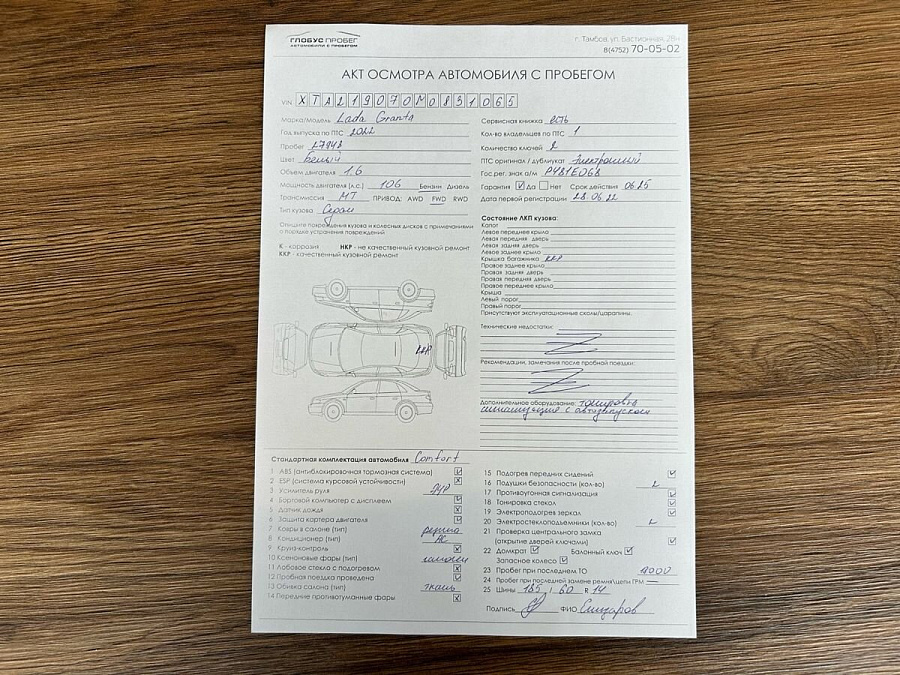 ГЛОБУС ПРОБЕГ
АВТОМОБИЛИ С ПРОБЕГОМ
г. Тамбов, ул. Бастионная, 28н
8(4752) 70-05-02
АКТ ОСМОТРА АВТОМОБИЛЯ С ПРОБЕГОМ
VIN XTA219070M0831065
Марка/Модель Lada Granta
Год выпуска по ПТС 2022
Пробег 27943
Цвет Белый
Объем двигателя 1.6
Мощность двигателя (л.с.) 106 Бензин Дизель
Трансмиссия МТ ПРИВОД: AWD FWD RWD
Тип кузова Седан
Опишите повреждения кузова и колесных дисков с примечаниями
о порядке устранения повреждений
К - коррозия НКР - не качественный кузовной ремонт
ККР - качественный кузовной ремонт
ККР
Сервисная книжка есть
Кол-во владельцев по ПТС 1
Количество ключей 2
ПТС оригинал / дубликат Электронный
Гос.рег. знак а/м Р481ЕО68
Гарантия Да Нет Срок действия 06.25
Дата первой регистрации 28.06.22
Состояние ЛКП кузова:
Капот
Левое переднее крыло
Левая передняя дверь
Левая задняя дверь
Левое заднее крыло
Крышка багажника ККР
Правое заднее крыло
Правая задняя дверь
Правая передняя дверь
Правое переднее крыло
Крыша
Левый порог
Правый порог
Присутствуют эксплуатационные сколы/царапины.
Технические недостатки:
Рекомендации, замечания после пробной поездки:
Дополнительное оборудование: тонировка
сигнализация с автозапуском
Стандартная комплектация автомобиля Comfort
1 ABS (антиблокировочная тормозная система)
2 ESP (система курсовой устойчивости)
3 Усилитель руля ЭУР
4 Бортовой компьютер с дисплеем
5 Датчик дождя
6 Защита картера двигателя
7 Ковры в салоне (тип) резина
8 Кондиционер (тип) АС
9 Круиз-контроль
10 Ксеноновые фары (тип) галоген
11 Лобовое стекло с подогревом
12 Пробная поездка проведена
13 Обивка салона (тип) ткань
14 Передние противотуманные фары
15 Подогрев передних сидений
16 Подушки безопасности (кол-во) 2
17 Противоугонная сигнализация
18 Тонировка стекол
19 Электроподогрев зеркал
20 Электростеклоподъемники (кол-во) 2
21 Проверка центрального замка
(открытие дверей ключами)
22 Домкрат Балонный ключ
Запасное колесо
23 Пробег при последнем ТО 9000
24 Пробег при последней замене ремня/цепи ГРМ —
25 Шины 185 / 60 R 14
Подпись ФИО